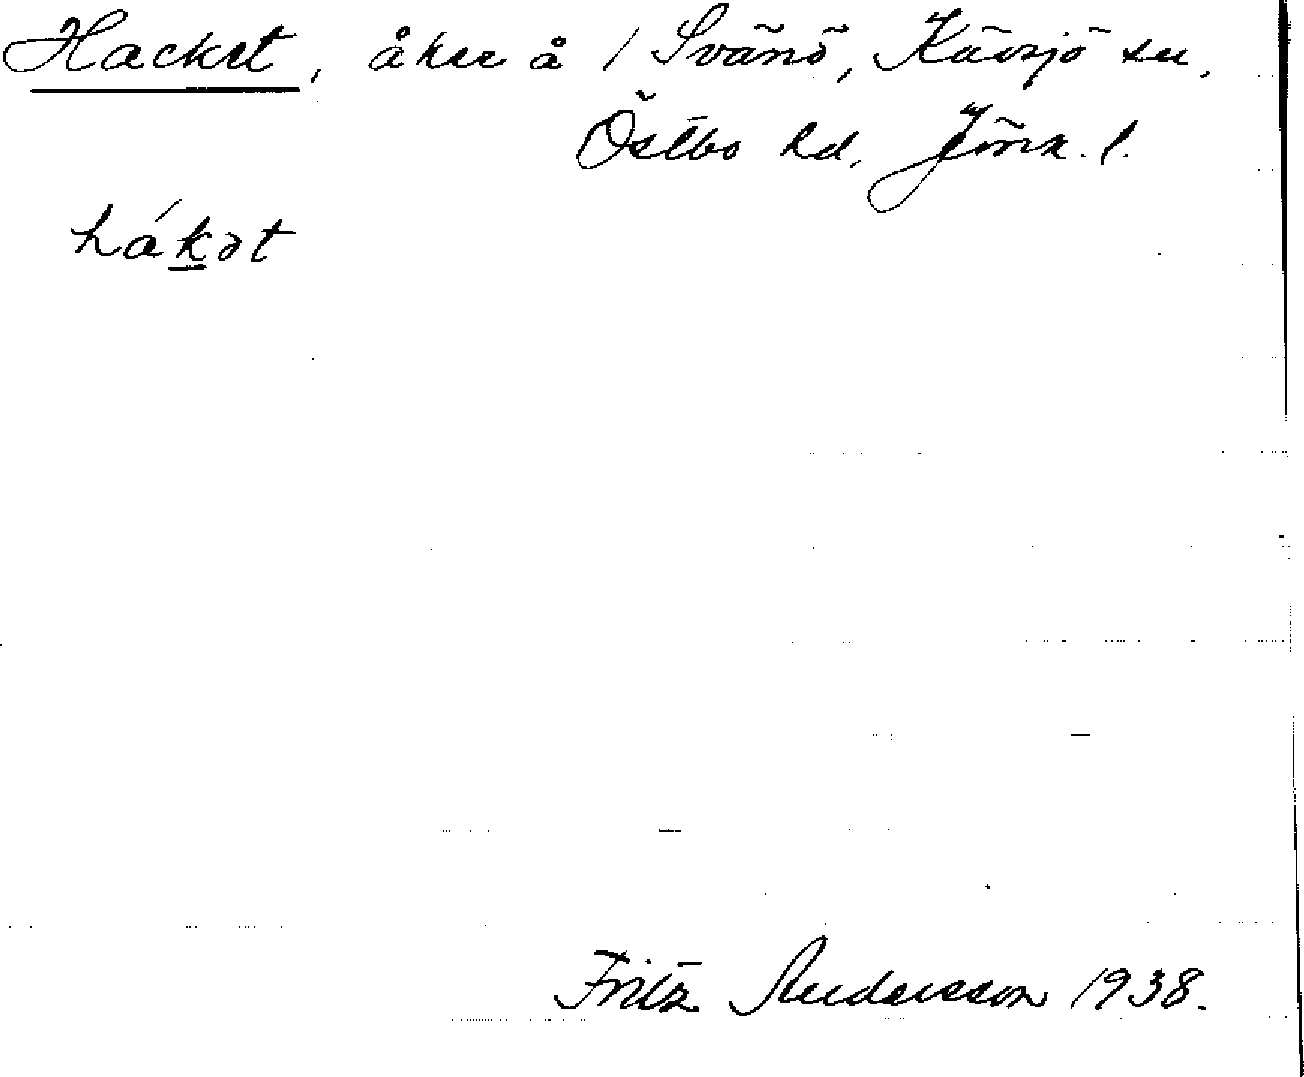 Hacket, åker å / Svänö, Kävsjö sn.
Östbo hd, Jönk. l.
hákət
Fritz Andersson 1938.